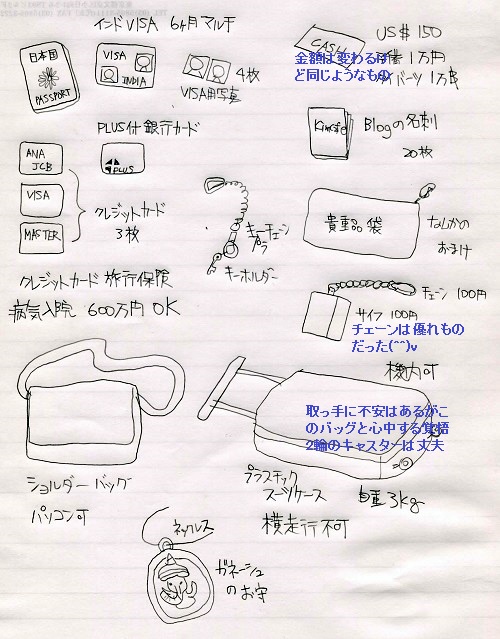 インドVISA 6ヶ月マルチ
日本国
PASSPORT
VISA
INDIA
4枚
VISA用写真
CASH
US$ 150
1万円
金額は変わるけ
ど同じようなもの
バーツ 1万B
Blogの名刺
20枚
PLUS付銀行カード
ANA
JCB
PLUS
VISA
MASTER
クレジットカード
3枚
キーチェーン
プラ
キーホルダー
貴重品袋
なんかの
おまけ
クレジットカード旅行保険
病気入院 600万円 OK
チェーン 100円
サイフ 100円
チェーンは優れもの
だった(^^)v
機内可
取っ手に不安はあるがこ
のバッグと心中する覚悟
2輪のキャスターは丈夫
ショルダーバッグ
パソコン可
プラスチック
スーツケース
自重3kg
横走行不可
ネックレス
ガネーシュ
のお守